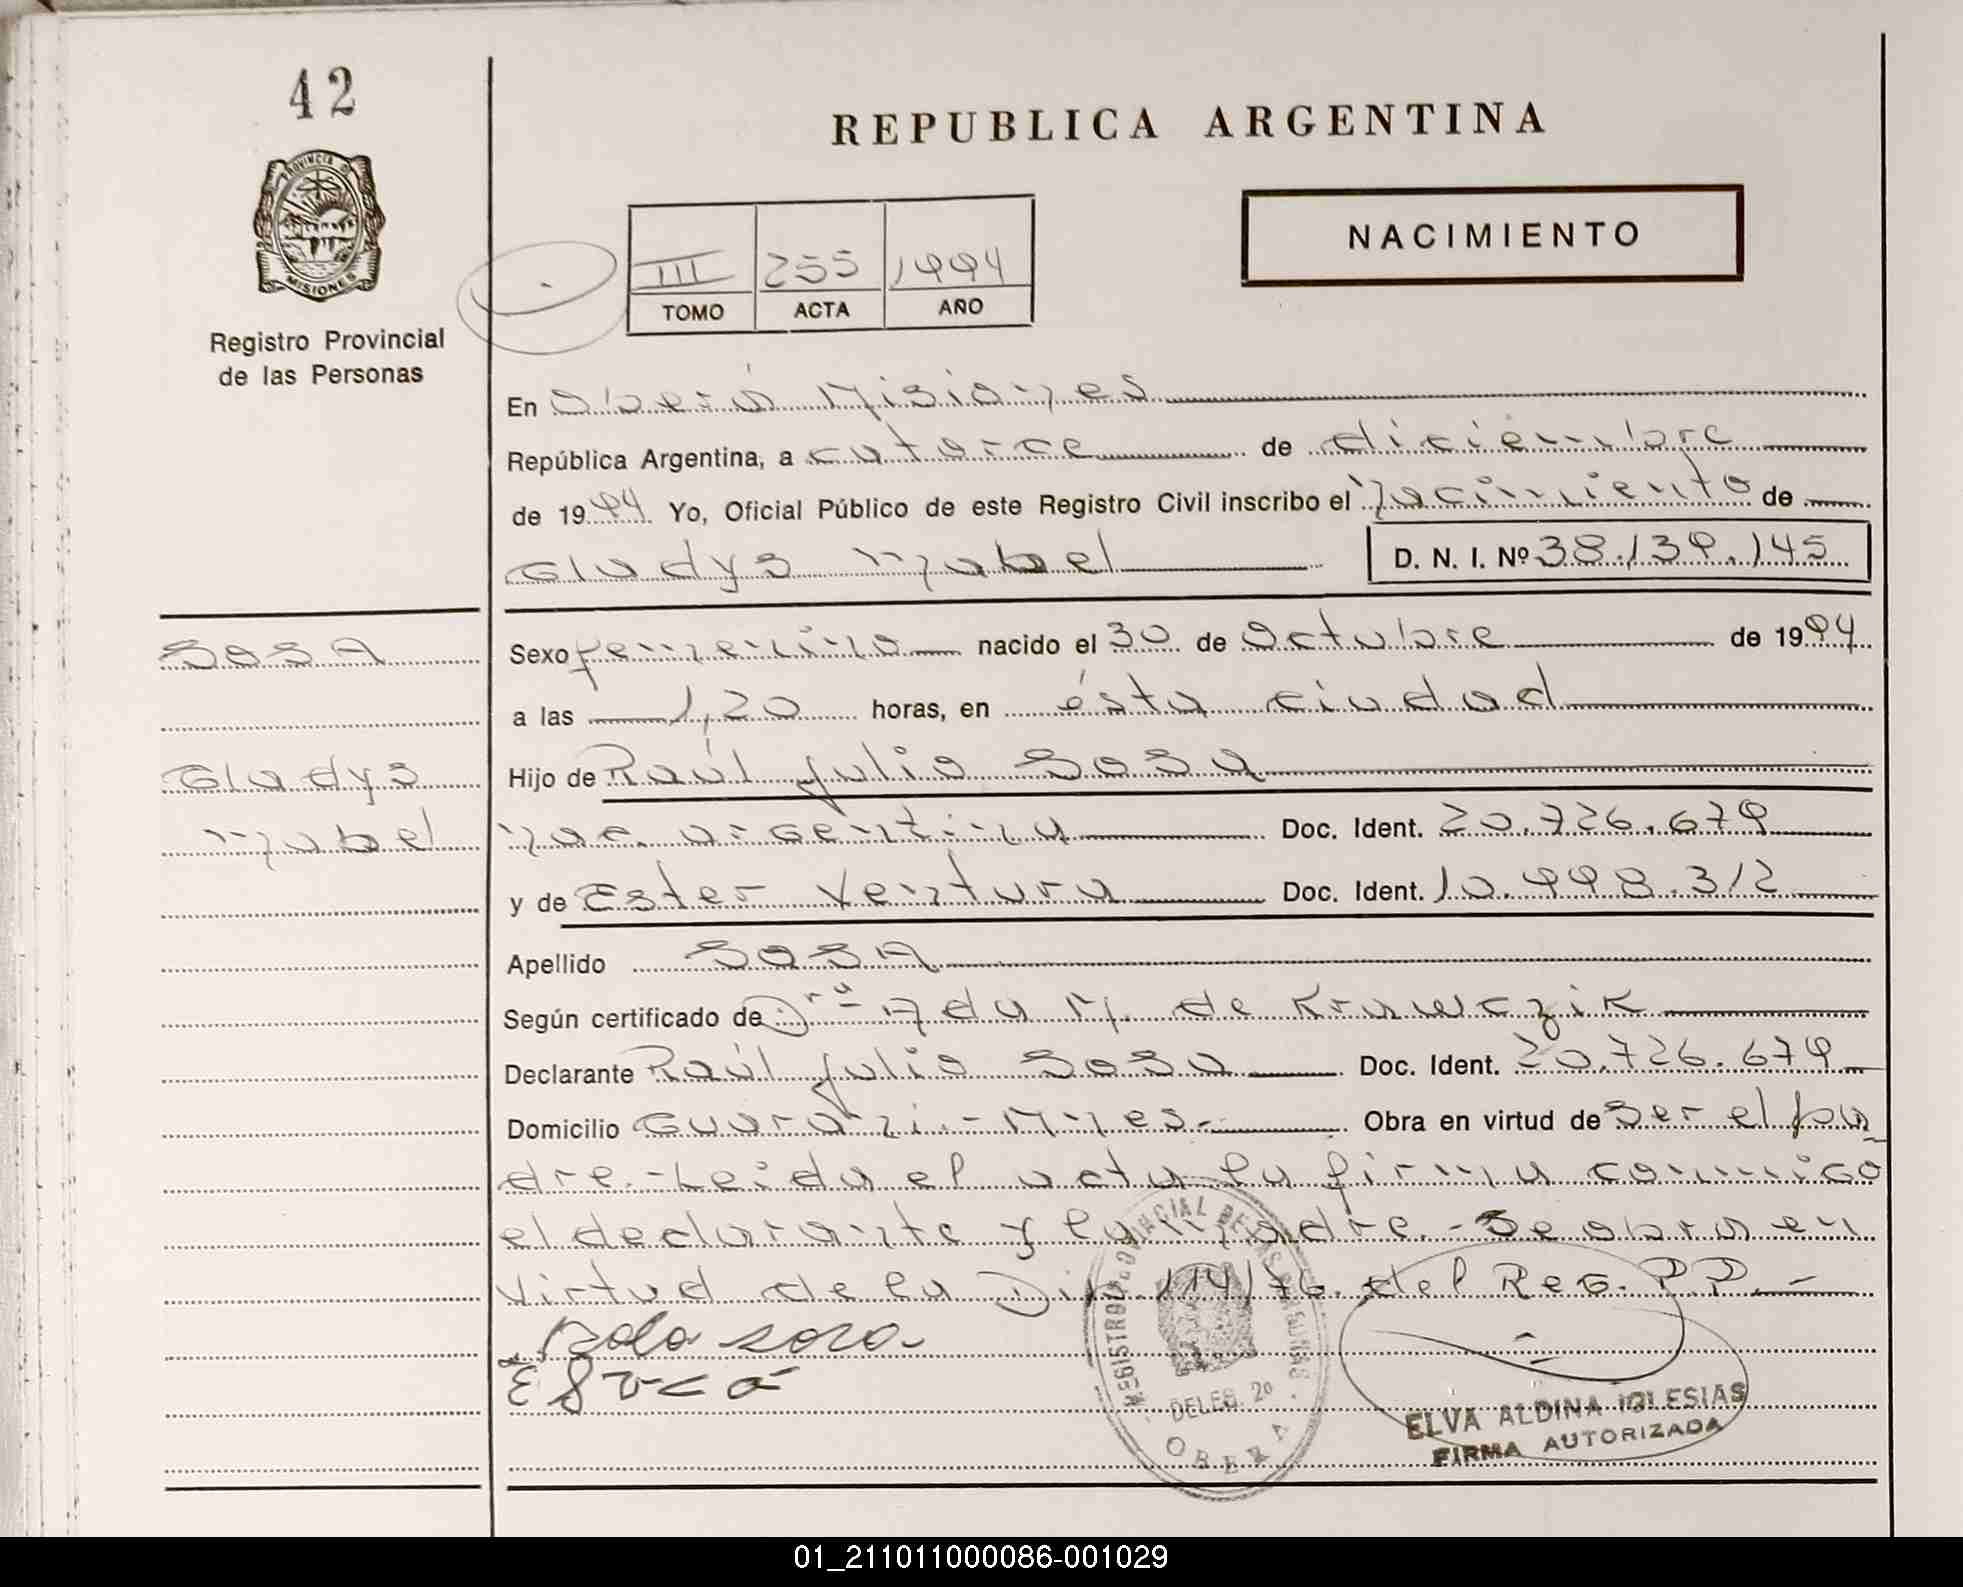 42
REPUBLICA ARGENTINA
PROVINCIA D
MISIONES
NACIMIENTO
III 255 1994
TOMO ACTA AÑO
Registro Provincial
de las Personas
En Oberá Misiones
República Argentina, a catorce de diciembre
de 1994 Yo, Oficial Público de este Registro Civil inscribo el nacimiento de
Gladys Mabel D. N. I. Nº 38.139.145
SOSA
Gladys
Mabel
Sexo femenino nacido el 30 de Octubre de 1994
a las 1,20 horas, en ésta ciudad
Hijo de Raúl Julio Sosa
nac. argentina Doc. Ident. 20.726.679
y de Ester Ventura Doc. Ident. 10.998.312
Apellido SOSA
Según certificado de Dra Ada M. de Krawczik
Declarante Raúl Julio Sosa Doc. Ident. 20.726.679
Domicilio Guaraní.-Mnes.- Obra en virtud de ser el pa
dre.-Leida el acta la firma conmigo
el declarante y la madre.-Se obra en
virtud de la Disp. 114/76. del Reg. P.P.-
REGISTRO PROVINCIAL DE LAS PERSONAS
DELEG. 2º
OBERA
ELVA ALDINA IGLESIAS
FIRMA AUTORIZADA
01_211011000086-001029